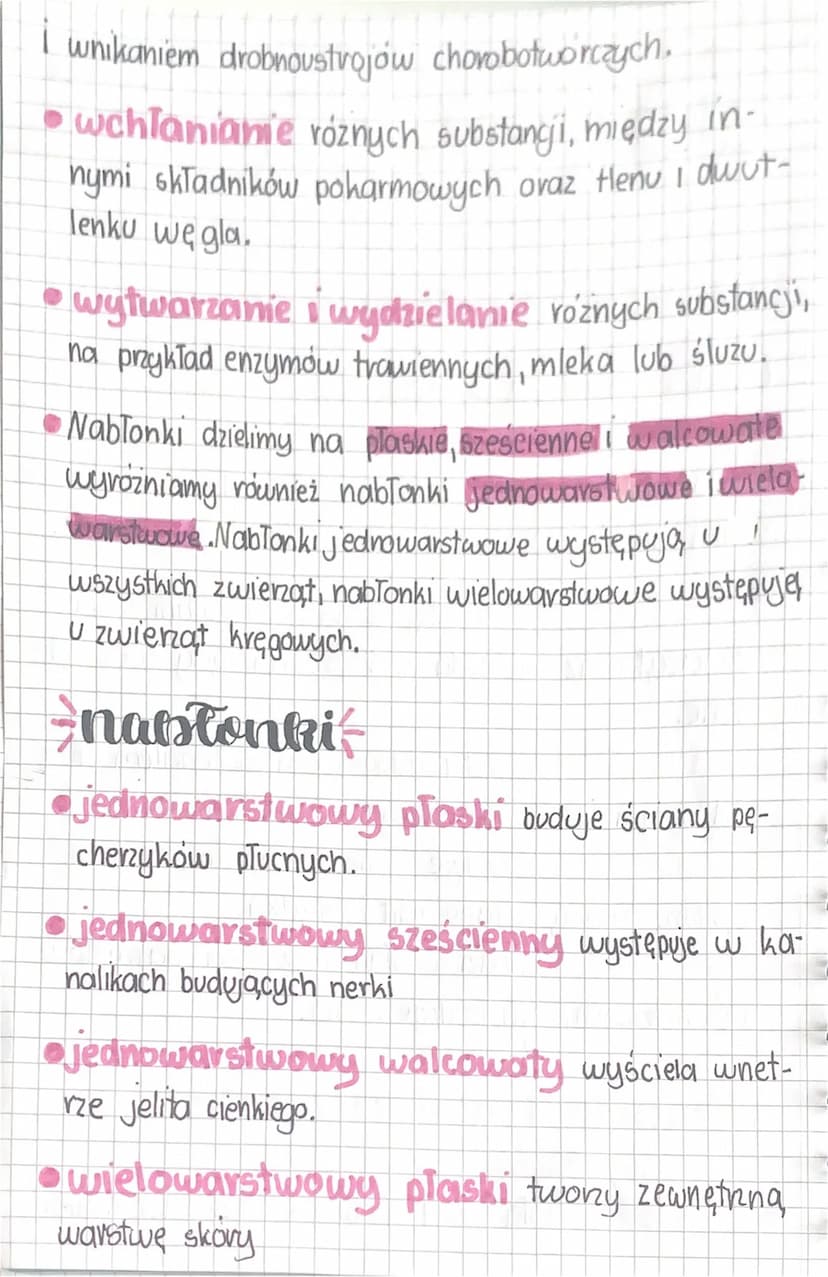 i wnikaniem drobnoustrojów chorobotwórczych.
• wchłanianie róznych substancji, między in-
nymi składników pokarmowych oraz tlenu i dwut-
lenku węgla.
• wytwarzanie i wydzielanie różnych substancji,
na przykład enzymów trawiennych, mleka lub śluzu.
• Nabłonki dzielimy na płaskie, sześcienne i walcowate
wyróżniamy również nabłonki jednowarstwowe i wielo-
warstwowe. Nabłonki jednowarstwowe występują u
wszystkich zwierząt, nabłonki wielowarstwowe występują
u zwierząt kręgowych.
nabłonki
• jednowarstwowy płaski buduje ściany pę-
cherzyków płucnych.
• jednowarstwowy sześcienny występuje w ka-
nalikach budujących nerki
• jednowarstwowy walcowaty wyściela wnęt-
rze jelita cienkiego.
• wielowarstwowy płaski tworzy zewnętrzną
warstwę skóry